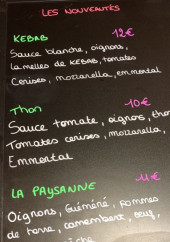 LES NOUVEAUTÉS
KEBAB 12€
Sauce blanche, oignons,
lamelles de KEBAB, tomates
Cerises, mozzarella, emmental
Thon 10€
Sauce tomate, oignons, thon
Tomates cerises, mozzarella,
Emmental
LA PAYSANNE 11€
Oignons, Guéméné, pommes
de terre, camembert, oeuf,